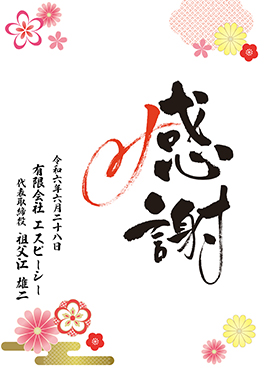 感謝
令和六年六月二十八日
有限会社 エスピーシー
代表取締役 祖父江 雄二